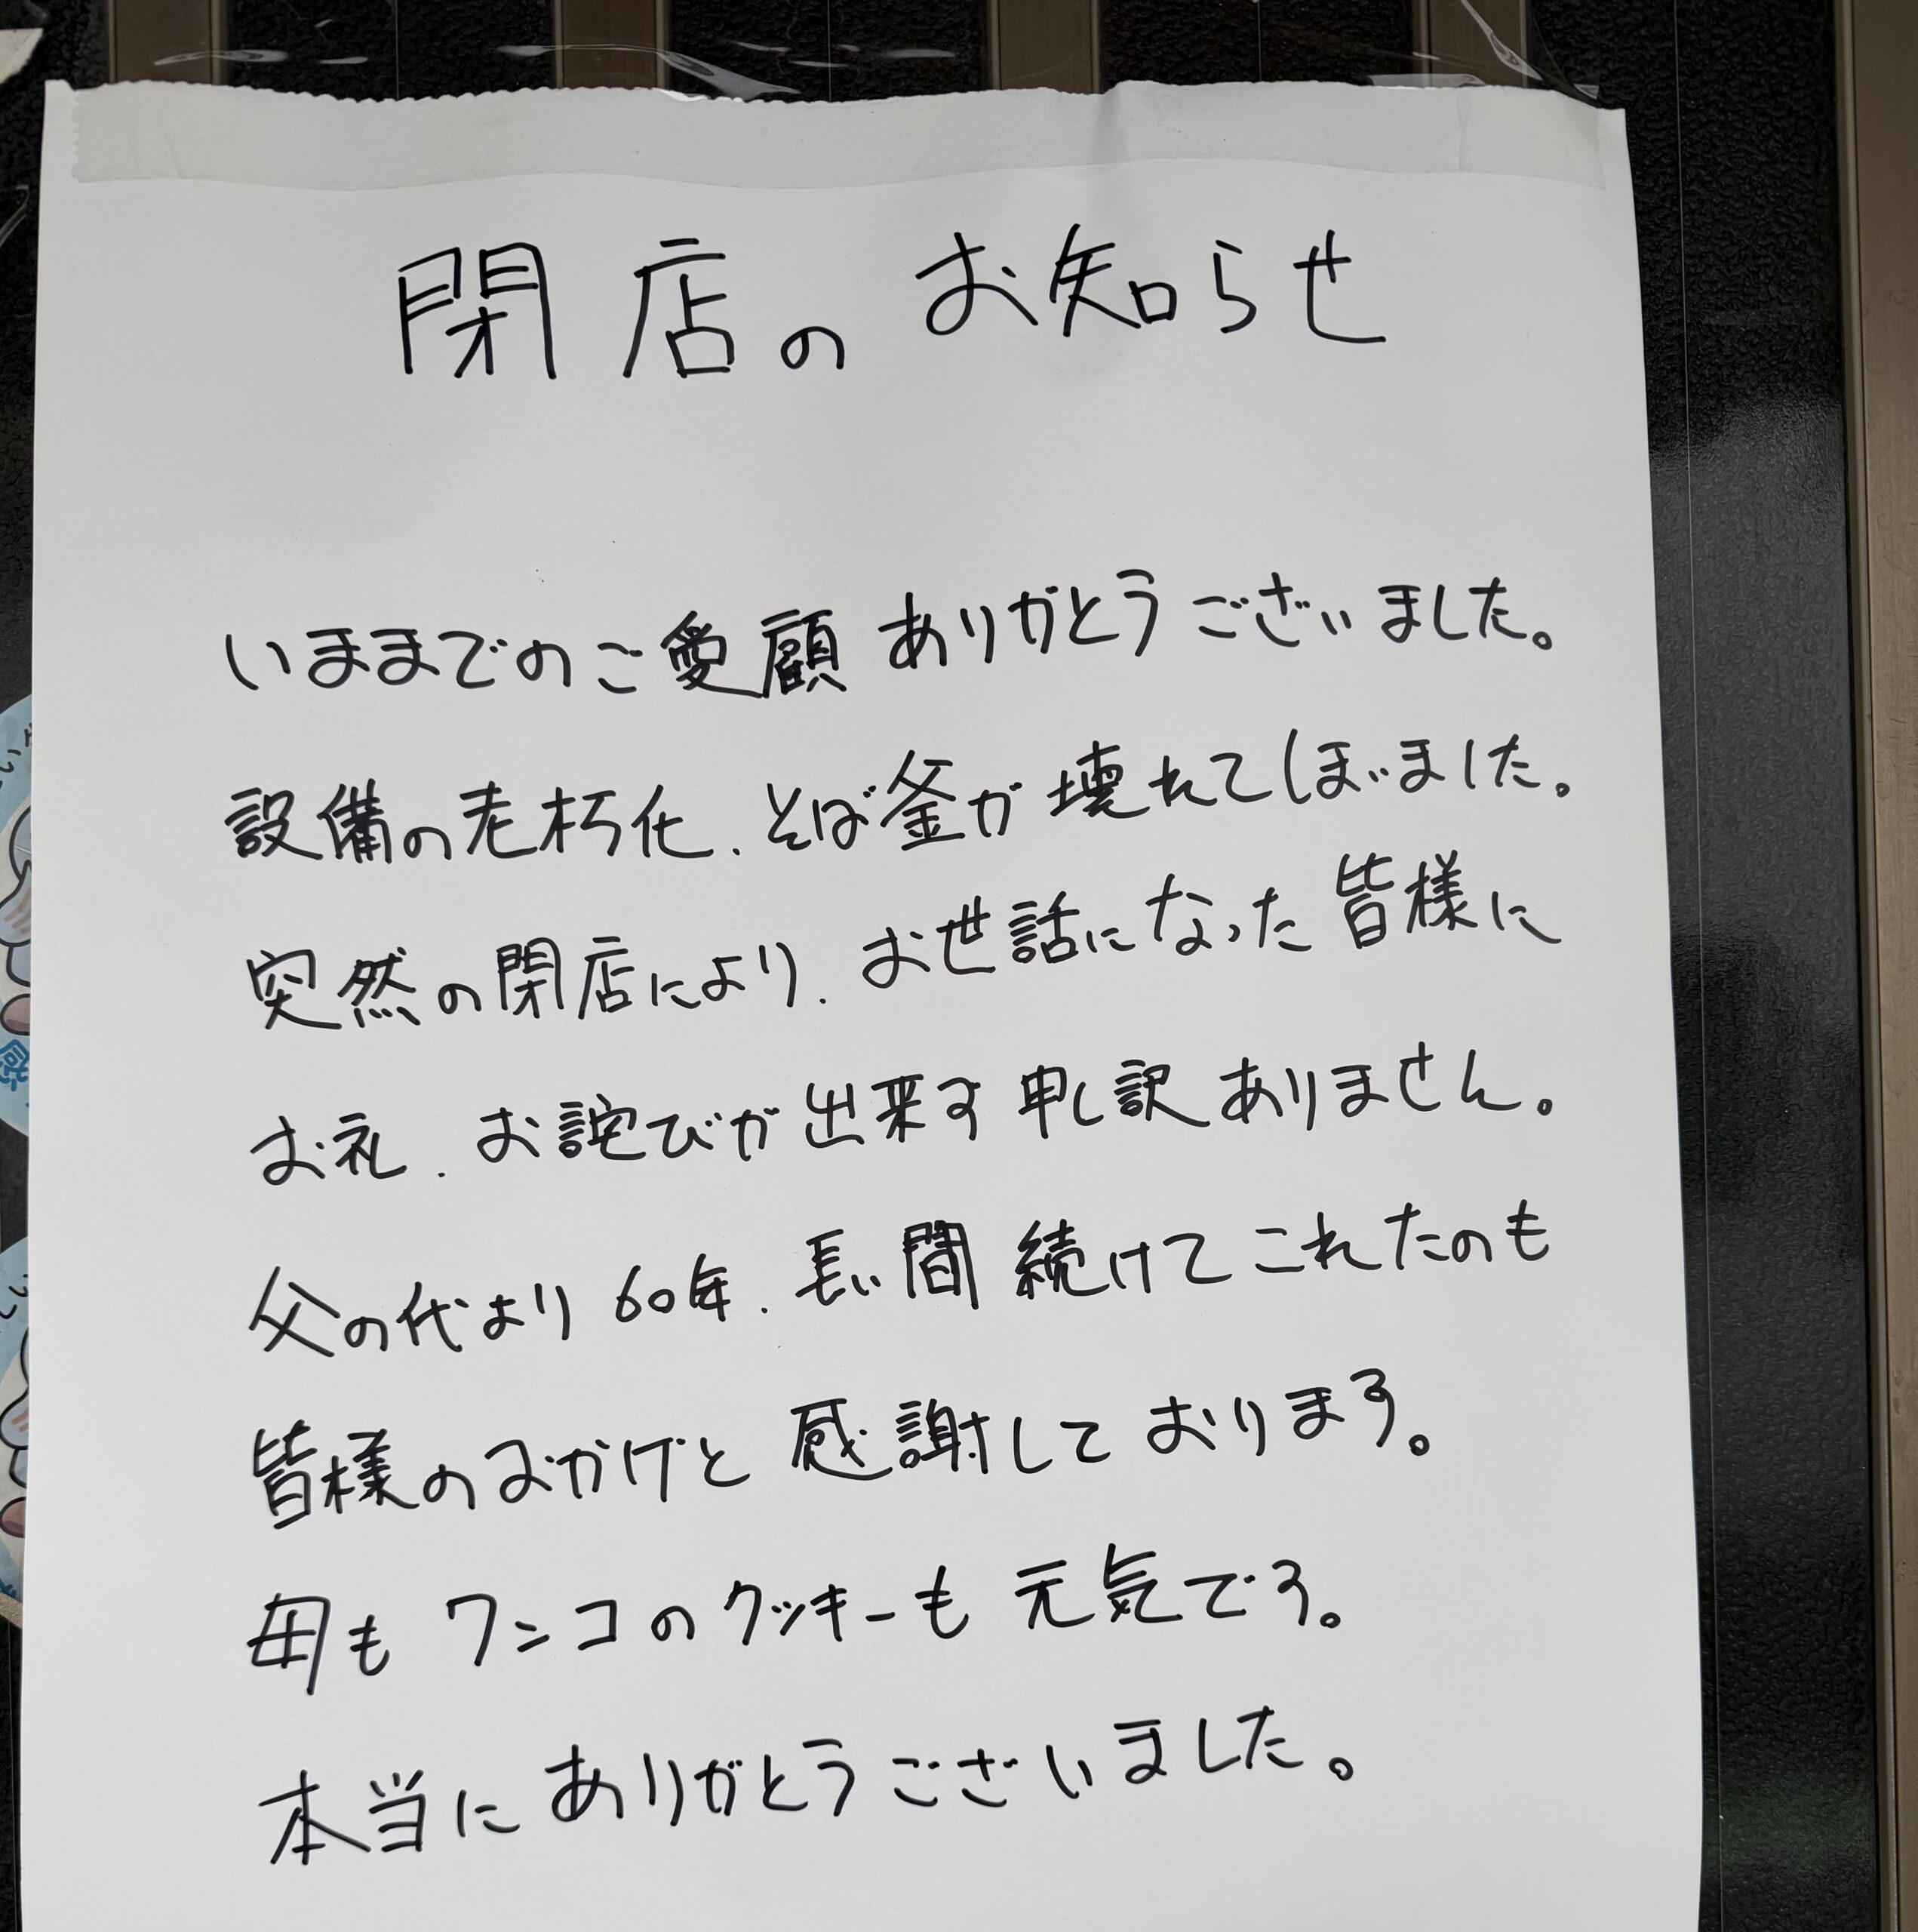 閉店のお知らせ
いままでのご愛顧ありがとうございました。
設備の老朽化、そば釜が壊れてしまいました。
突然の閉店により、お世話になった皆様に
お礼、お詫びが出来ず申し訳ありません。
父の代より60年、長い間続けてこれたのも
皆様のおかげと感謝しております。
母もワンコのクッキーも元気です。
本当にありがとうございました。